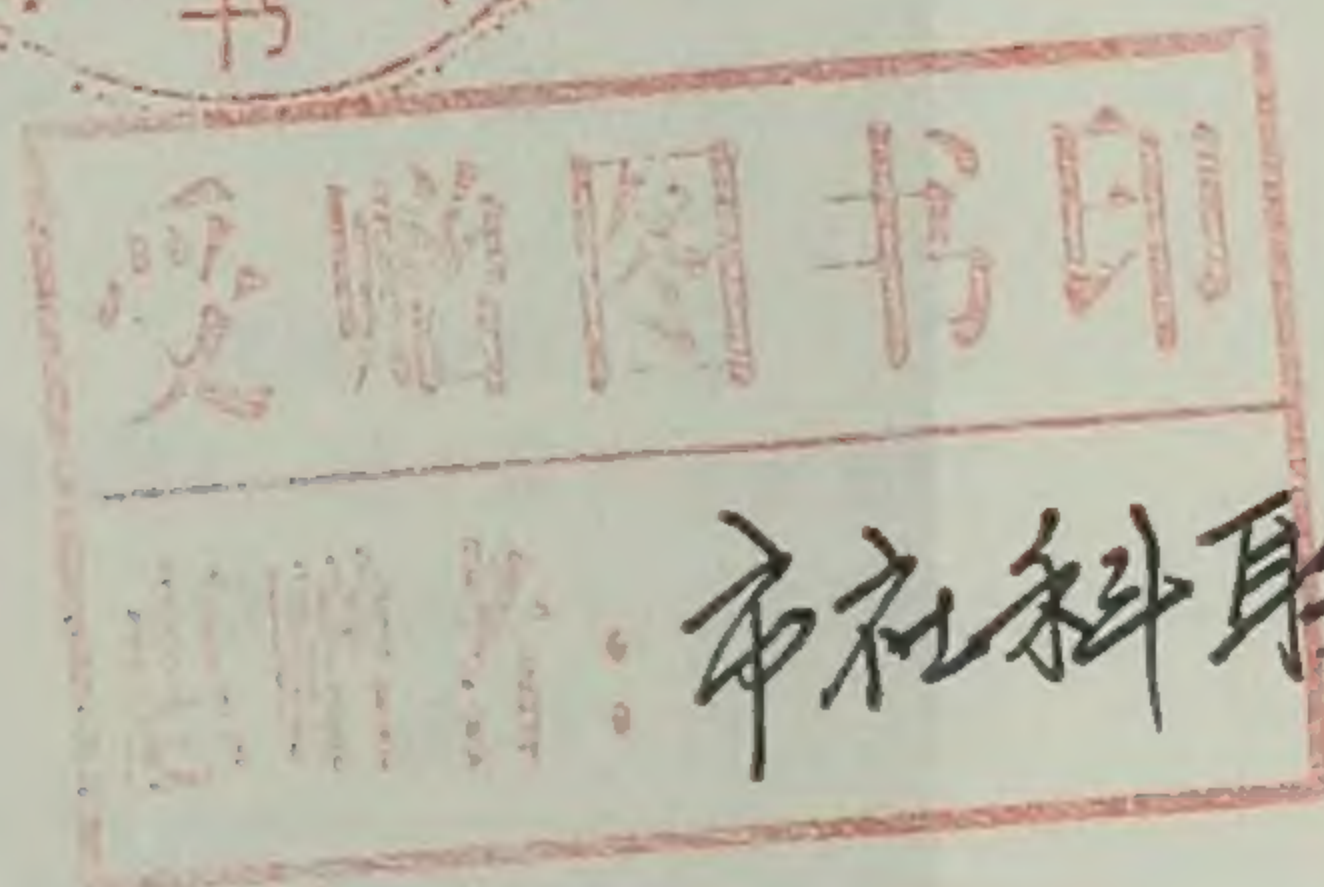 书
受赠图书印
赠者：市社科联